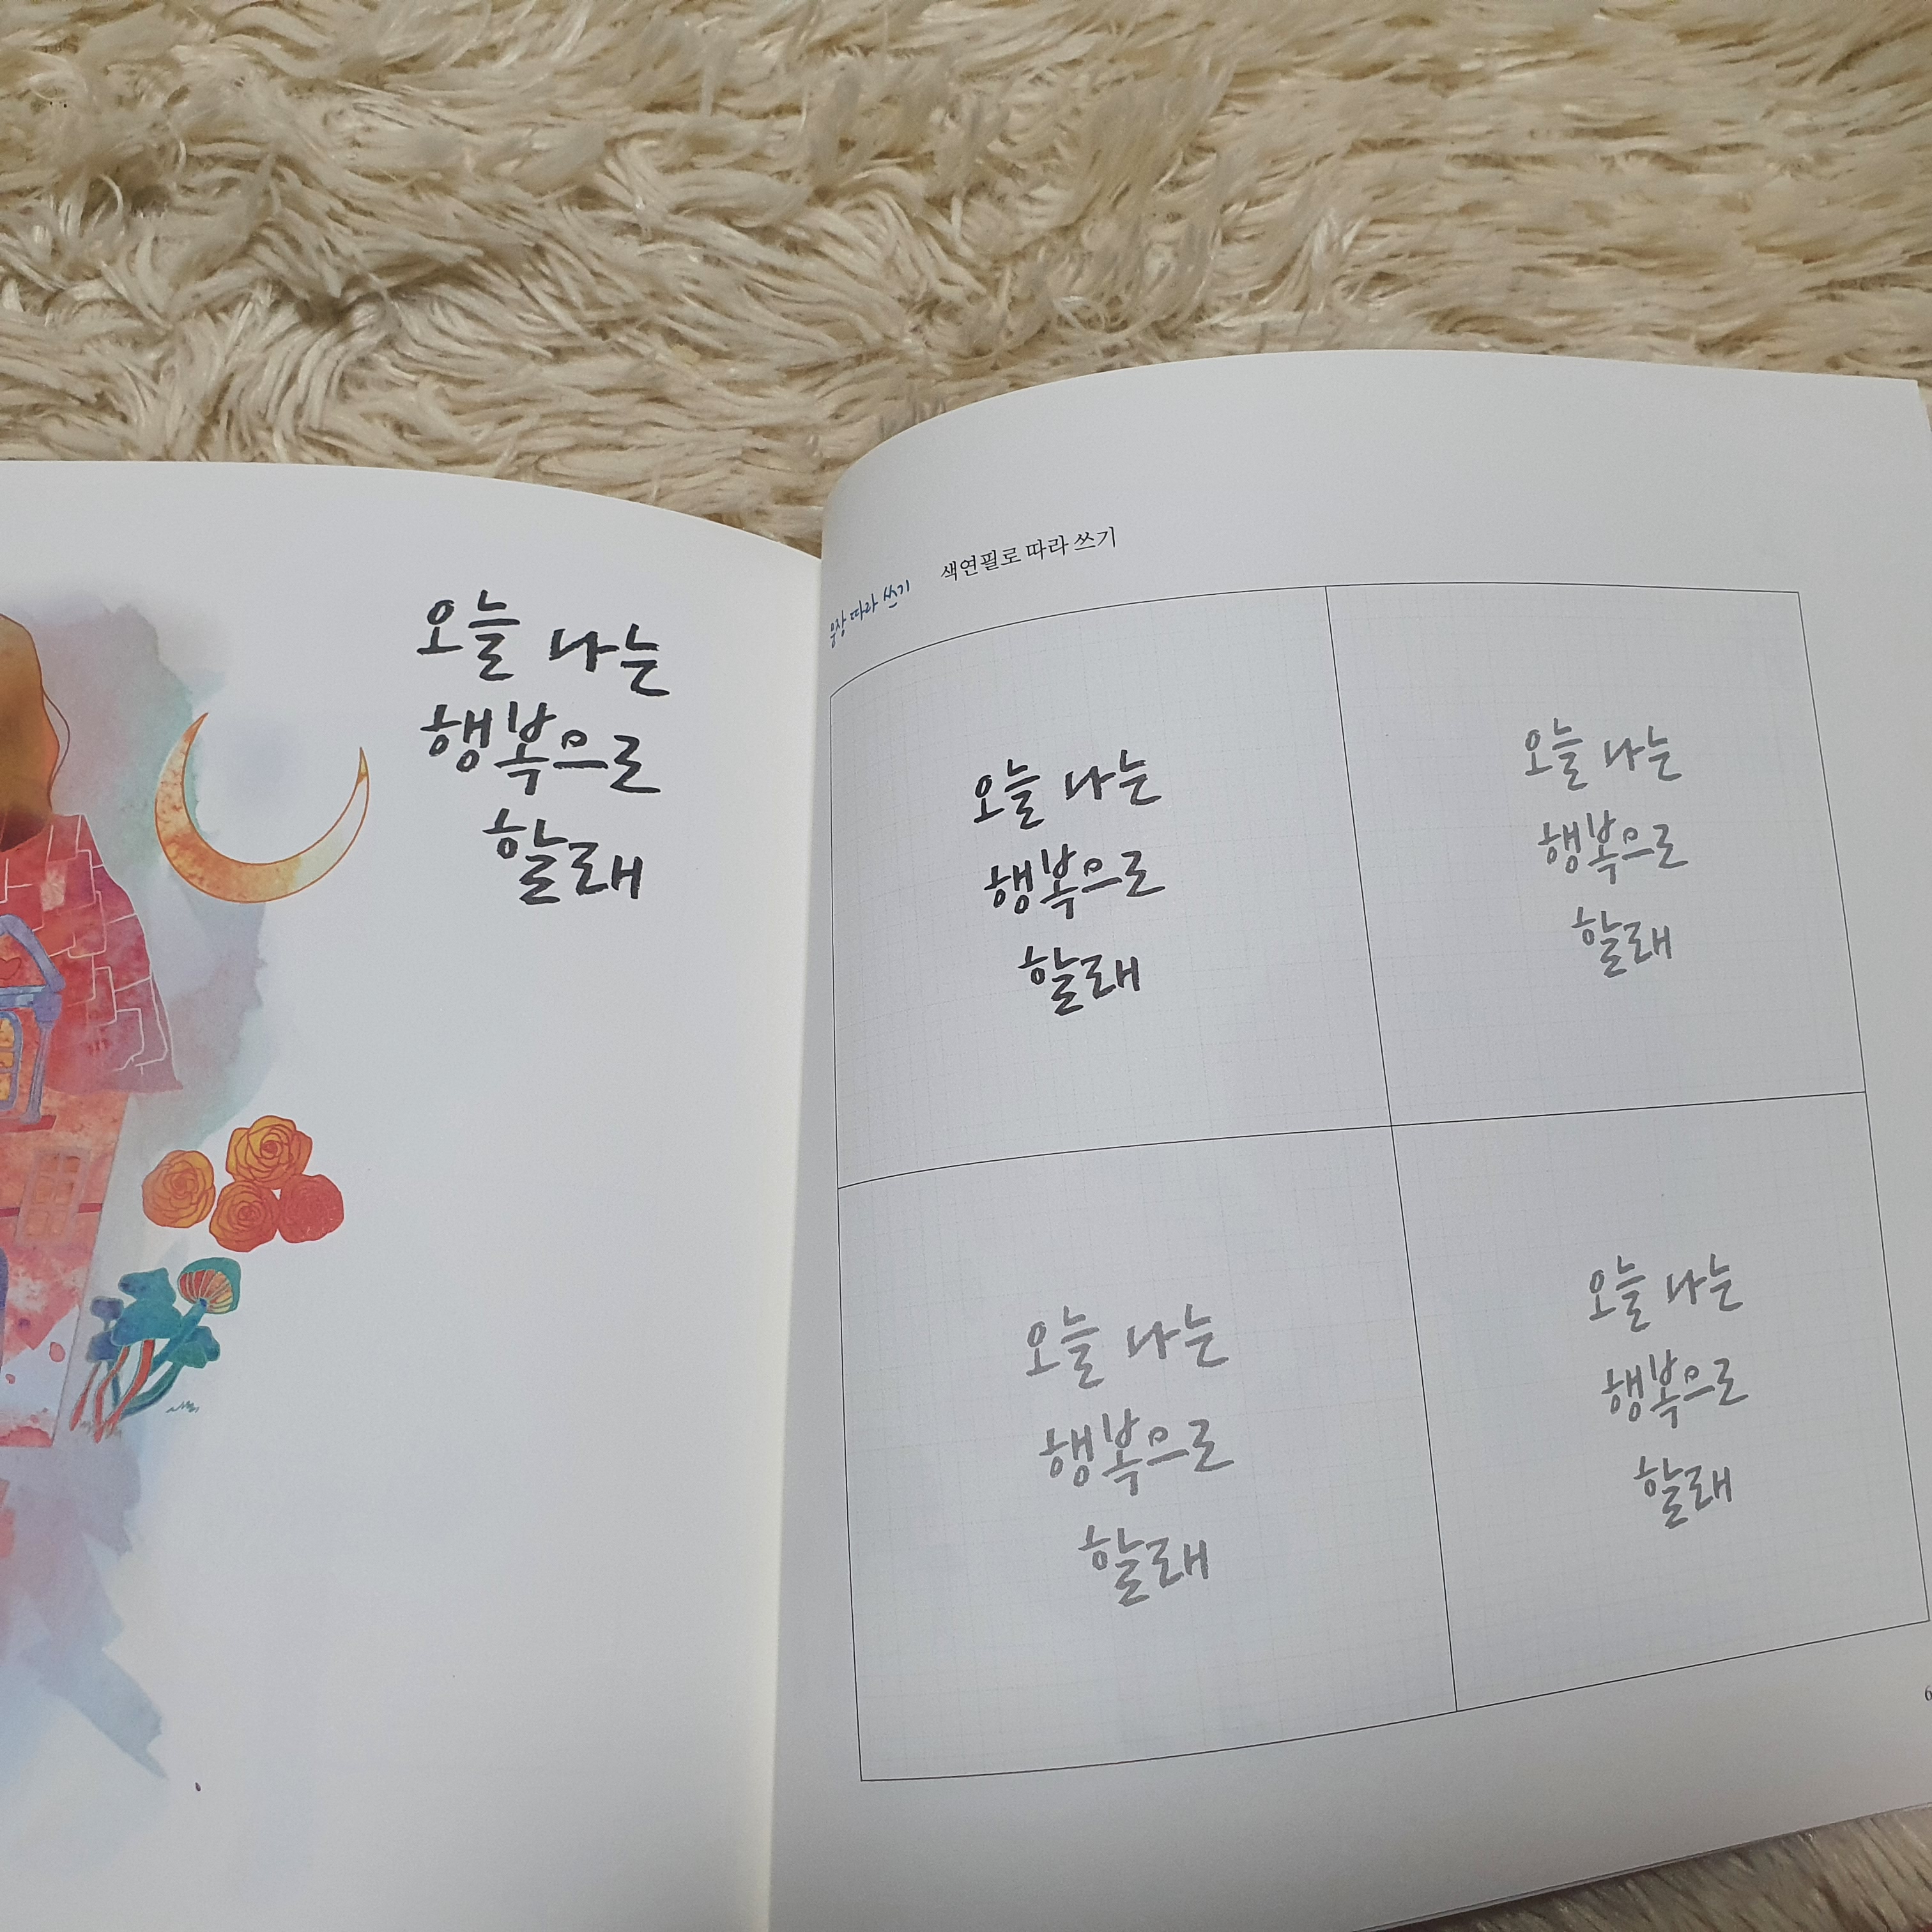 오늘 나는
행복으로
할래
문장 따라 쓰기 색연필로 따라 쓰기
오늘 나는
행복으로
할래
오늘 나는
행복으로
할래
오늘 나는
행복으로
할래
오늘 나는
행복으로
할래